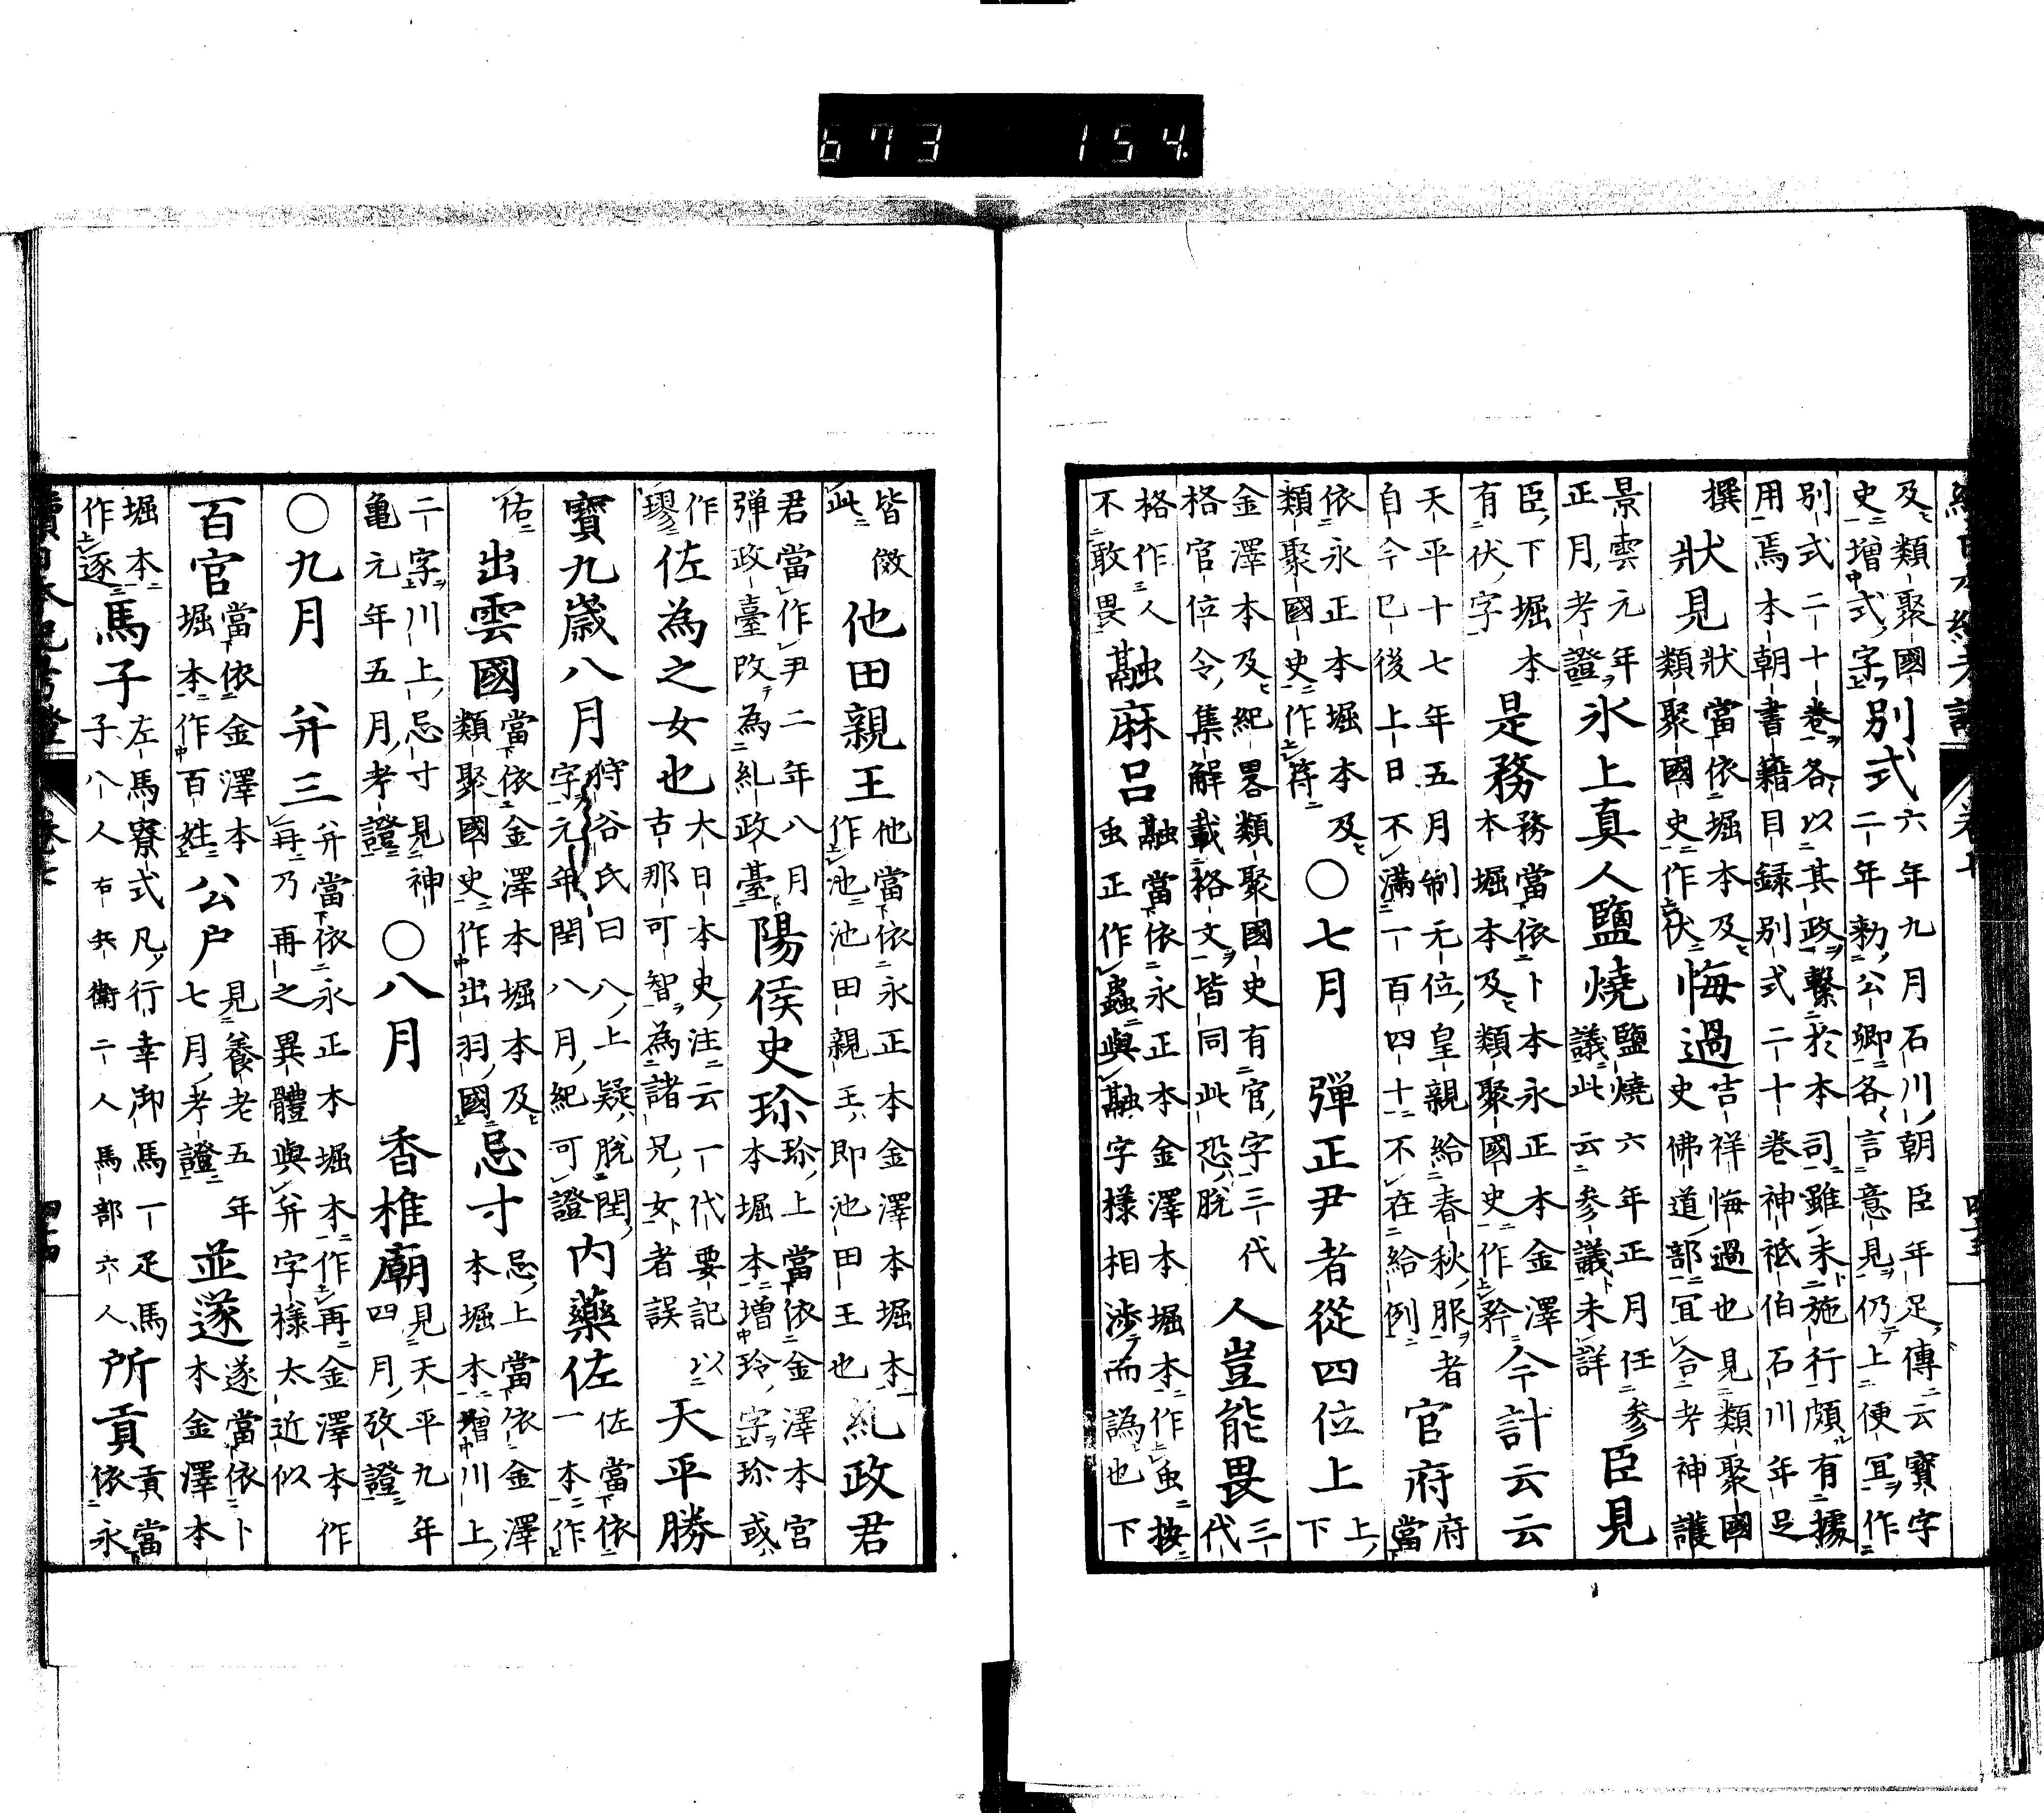 及類聚國史增式字 別式 六年九月石川朝臣年足傳云寶字二年勅公卿各言意見仍上便宜作
別式二十卷各以其政繫於本司雖未施行頗有據用焉本朝書籍目録別式二十卷神祇伯石川年足
撰 狀見 狀當依堀本及類聚國史作伏 悔過 吉祥悔過也見類聚國史佛道部宜合考神護
景雲元年正月考證 氷上真人鹽燒 鹽燒六年正月任參議此云參議未詳 臣見
臣下堀本有伏字 是務 務當依卜本永正本金澤本堀本及類聚國史作矜 今計云云
天平十七年五月制无位皇親給春秋服者自今已後上日不滿一百四十不在給例 官府 府當
依永正本堀本及類聚國史作符 ○七月 弾正尹者從四位上 上下
金澤本及紀畧類聚國史有官字三代格官位令集解載格文皆同此恐脱 人豈能畏 三代
格作人不敢畏 融麻呂 融當依永正本金澤本堀本作䖝按䖝正作蟲與融字様相渉而譌也下
皆倣此 他田親王 他當依永正本金澤本堀本作池池田親王即池田王也 糺政君
君當作尹二年八月弾政臺改為糺政臺 陽侯史珎 珎上當依金澤本宮本堀本増玲字珎或
作璆 佐為之女也 大日本史注云一代要記以古那可智為諸兄女者誤 天平勝
寳九歳八月 狩谷氏曰八上疑脱閏字元年閏八月紀可證 内藥佐 佐當依一本作
佑 出雲國 當依金澤本堀本及類聚國史作出羽國 忌寸 忌上當依金澤本堀本増川上
二字川上忌寸見神亀元年五月考證 ○八月 香椎廟 見天平九年四月攷證
○九月 并三 并當依永正本堀本作再金澤本作再乃再之異體與并字様太近似
百官 當依金澤本堀本作百姓 公户 見養老五年七月考證 並遂 遂當依卜本金澤本
堀本作逐 馬子 左馬寮式凡行幸御馬一疋馬子八人右兵衞二人馬部六人 所貢 貢當依永
續日本紀考證 卷七 四十四